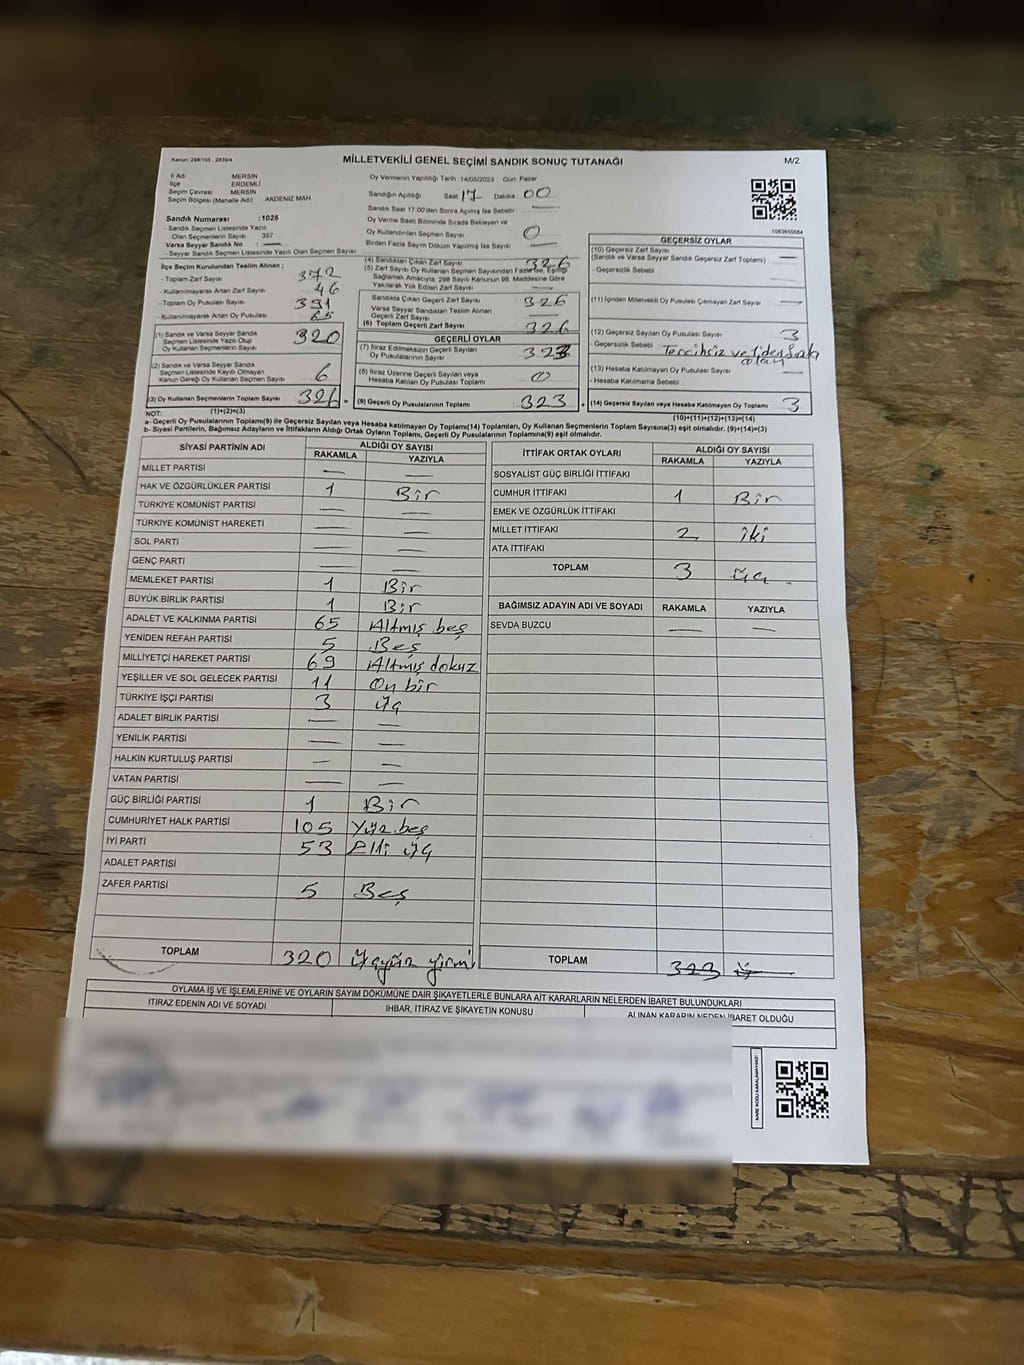 Kanun: 298/105 , 2839/4
MİLLETVEKİLİ GENEL SEÇİMİ SANDIK SONUÇ TUTANAĞI
M/2
İl Adı MERSİN
İlçe ERDEMLİ
Seçim Çevresi MERSİN
Seçim Bölgesi (Mahalle Adı) AKDENİZ MAH
Sandık Numarası :1025
- Sandık Seçmen Listesinde Yazılı
Olan Seçmenlerin Sayısı 357
Varsa Seyyar Sandık No :
- Seyyar Sandık Seçmen Listesinde Yazılı Olan Seçmen Sayısı
Oy Vermenin Yapıldığı Tarih :14/05/2023 Gün Pazar
Sandığın Açıldığı Saat 17 Dakika 00
Sandık Saat 17.00'den Sonra Açılmış İse Sebebi
Oy Verme Saati Bitiminde Sırada Bekleyen ve
Oy Kullandırılan Seçmen Sayısı 0
Birden Fazla Sayım Döküm Yapılmış İse Sayısı
1083650064
İlçe Seçim Kurulundan Teslim Alınan ;
- Toplam Zarf Sayısı 372
- Kullanılmayarak Artan Zarf Sayısı 46
- Toplam Oy Pusulası Sayısı 391
- Kullanılmayarak Artan Oy Pusulası 65
(1) Sandık ve Varsa Seyyar Sandık
Seçmen Listesinde Yazılı Olup
Oy Kullanan Seçmenlerin Sayısı 320
(2) Sandık ve Varsa Seyyar Sandık
Seçmen Listesinde Kayıtlı Olmayan
Kanun Gereği Oy Kullanan Seçmen Sayısı 6
(3) Oy Kullanan Seçmenlerin Toplam Sayısı 326 =
(1)+(2)=(3)
(4) Sandıktan Çıkan Zarf Sayısı 326
(5) Zarf Sayısı Oy Kullanan Seçmen Sayısından Fazla İse, Eşitliği
Sağlamak Amacıyla, 298 Sayılı Kanunun 98. Maddesine Göre
Yakılarak Yok Edilen Zarf Sayısı
Sandıkta Çıkan Geçerli Zarf Sayısı 326
Varsa Seyyar Sandıktan Teslim Alınan
Geçerli Zarf Sayısı
(6) Toplam Geçerli Zarf Sayısı 326
GEÇERLİ OYLAR
(7) İtiraz Edilmeksizin Geçerli Sayılan
Oy Pusulalarının Sayısı 323
(8) İtiraz Üzerine Geçerli Sayılan veya
Hesaba Katılan Oy Pusulası Toplamı 0
(9) Geçerli Oy Pusulalarının Toplamı 323 +
GEÇERSİZ OYLAR
(10) Geçersiz Zarf Sayısı
(Sandık ve Varsa Seyyar Sandık Geçersiz Zarf Toplamı)
- Geçersizlik Sebebi
(11) İçinden Milletvekili Oy Pusulası Çıkmayan Zarf Sayısı
(12) Geçersiz Sayılan Oy Pusulası Sayısı 3
- Geçersizlik Sebebi Tercihsiz ve 1'den fazla
olan
(13) Hesaba Katılmayan Oy Pusulası Sayısı
- Hesaba Katılmama Sebebi
(14) Geçersiz Sayılan veya Hesaba Katılmayan Oy Toplamı 3
(10)+(11)+(12)+(13)=(14)
NOT:
a- Geçerli Oy Pusulalarının Toplamı(9) ile Geçersiz Sayılan veya Hesaba katılmayan Oy Toplamı(14) Toplamları, Oy Kullanan Seçmenlerin Toplam Sayısına(3) eşit olmalıdır. (9)+(14)=(3)
b- Siyasi Partilerin, Bağımsız Adayların ve İttifakların Aldığı Ortak Oyların Toplamı, Geçerli Oy Pusulalarının Toplamına(9) eşit olmalıdır.
SİYASİ PARTİNİN ADI ALDIĞI OY SAYISI
RAKAMLA YAZIYLA
MİLLET PARTİSI
HAK VE ÖZGÜRLÜKLER PARTİSİ 1 Bir
TÜRKİYE KOMÜNİST PARTİSİ
TÜRKİYE KOMÜNİST HAREKETİ
SOL PARTİ
GENÇ PARTİ
MEMLEKET PARTİSİ 1 Bir
BÜYÜK BİRLİK PARTİSİ 1 Bir
ADALET VE KALKINMA PARTİSİ 65 Altmış beş
YENİDEN REFAH PARTİSİ 5 Beş
MİLLİYETÇİ HAREKET PARTİSİ 69 Altmış dokuz
YEŞİLLER VE SOL GELECEK PARTİSİ 11 On bir
TÜRKİYE İŞÇİ PARTİSİ 3 üç
ADALET BİRLİK PARTİSİ
YENİLİK PARTİSİ
HALKIN KURTULUŞ PARTİSİ
VATAN PARTİSİ
GÜÇ BİRLİĞİ PARTİSİ 1 Bir
CUMHURİYET HALK PARTİSİ 105 Yüz beş
İYİ PARTİ 53 Elli üç
ADALET PARTİSİ
ZAFER PARTİSİ 5 Beş
TOPLAM 320 Üçyüz yirmi
İTTİFAK ORTAK OYLARI ALDIĞI OY SAYISI
RAKAMLA YAZIYLA
SOSYALİST GÜÇ BİRLİĞİ İTTİFAKI
CUMHUR İTTİFAKI 1 Bir
EMEK VE ÖZGÜRLÜK İTTİFAKI
MİLLET İTTİFAKI 2 iki
ATA İTTİFAKI
TOPLAM 3 üç
BAĞIMSIZ ADAYIN ADI VE SOYADI RAKAMLA YAZIYLA
SEVDA BUZCU
TOPLAM 323
OYLAMA İŞ VE İŞLEMLERİNE VE OYLARIN SAYIM DÖKÜMÜNE DAİR ŞİKAYETLERLE BUNLARA AİT KARARLARIN NELERDEN İBARET BULUNDUKLARI
İTİRAZ EDENİN ADI VE SOYADI İHBAR, İTİRAZ VE ŞİKAYETİN KONUSU ALINAN KARARIN NEDEN İBARET OLDUĞU
KARE KODU KARALAMAYINIZ!